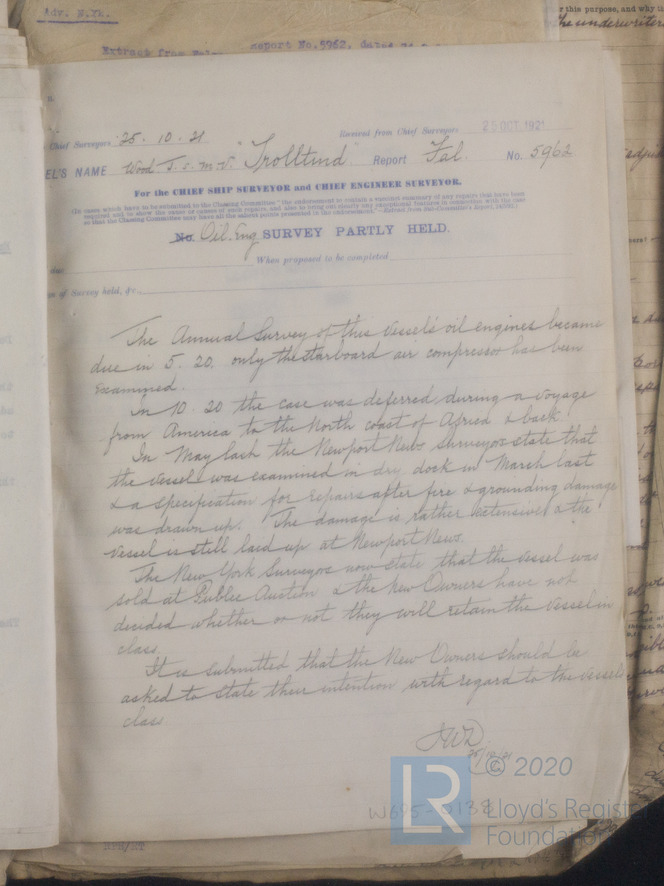 Adv. N.Yk.
Extract from
Report No.5962, dated
r this purpose, and why
the underwriter
Chief Surveyors 25.10.21 Received from Chief Surveyors 25 OCT 1921
EL'S NAME Wood T.s.m.v. "Trolltind" Report Fal. No. 5962
For the CHIEF SHIP SURVEYOR and CHIEF ENGINEER SURVEYOR.
(In cases which have to be submitted to the Classing Committee "the endorsement to contain a succinct summary of any repairs that have been
required and to show the cause or causes of such repairs, and also to bring out clearly any exceptional features in connection with the case
so that the Classing Committee may have all the salient points presented in the endorsement."
No Oil. Eng SURVEY PARTLY HELD.
due
When proposed to be completed
of Survey held, &c.,
The Annual Survey of this Vessel's oil engines became
due in 5.20. only the starboard air compressor has been
examined.
In 10.20 the case was deferred during a voyage
from America to the North coast of Africa & back.
In May last the Newport News Surveyors state that
the vessel was examined in dry dock in March last
& a specification for repairs after fire & grounding damage
was drawn up. The damage is rather extensive & the
vessel is still laid up at Newport News.
The New York Surveyors now state that the vessel was
sold at Public Auction & the New Owners have not
decided whether or not they will retain the vessel in
class.
It is submitted that the New Owners should be
asked to state their intention with regard to the vessels
class
25/10/21
W695-0138
LR © 2020
Lloyd's Register
Foundation